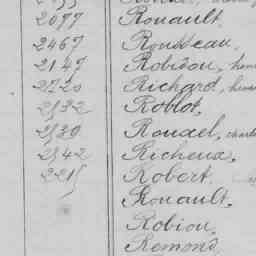 2077 Rouault,
2467 Rousseau,
2147 Robidou, hen
2720 Richard, hen
2532 Roblot,
2530 Rouxel, charle
2542 Richeux,
2215 Robert
Rouault,
Robiou,
Remond,